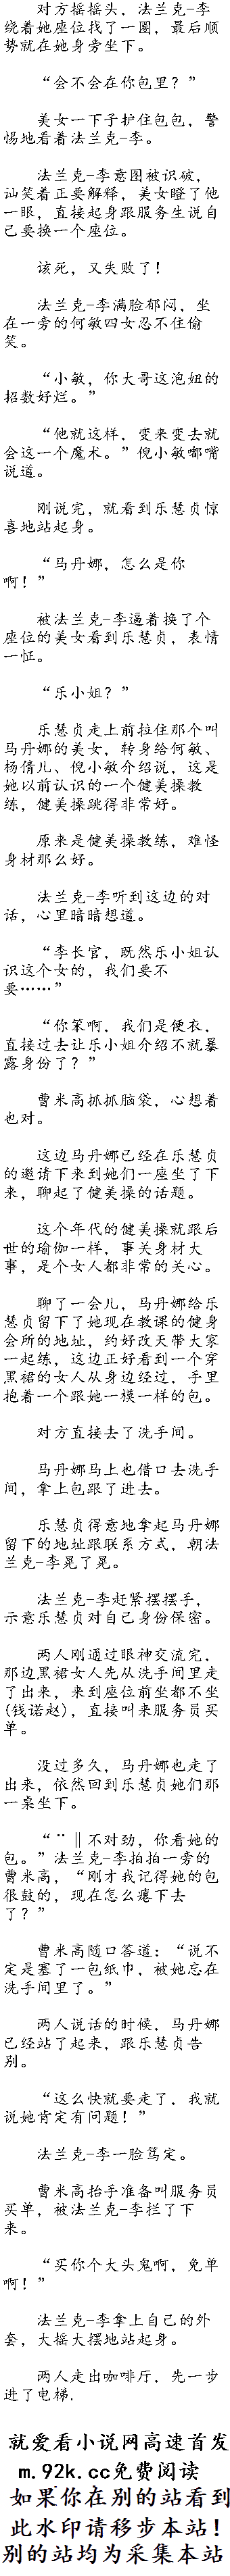 对方摇摇头，法兰克-李
绕着她座位找了一圈，最后顺
势就在她身旁坐下。
“会不会在你包里？”
美女一下子护住包包，警
惕地看着法兰克-李。
法兰克-李意图被识破，
讪笑着正要解释，美女瞪了他
一眼，直接起身跟服务生说自
己要换一个座位。
该死，又失败了！
法兰克-李满脸郁闷，坐
在一旁的何敏四女忍不住偷
笑。
“小敏，你大哥这泡妞的
招数好烂。”
“他就这样，变来变去就
会这一个魔术。”倪小敏嘟嘴
说道。
刚说完，就看到乐慧贞惊
喜地站起身。
“马丹娜，怎么是你
啊！”
被法兰克-李逼着换了个
座位的美女看到乐慧贞，表情
一怔。
“乐小姐？”
乐慧贞走上前拉住那个叫
马丹娜的美女，转身给何敏、
杨倩儿、倪小敏介绍说，这是
她以前认识的一个健美操教
练，健美操跳得非常好。
原来是健美操教练，难怪
身材那么好。
法兰克-李听到这边的对
话，心里暗暗想道。
“李长官，既然乐小姐认
识这个女的，我们要不
要……”
“你笨啊，我们是便衣，
直接过去让乐小姐介绍不就暴
露身份了？”
曹米高抓抓脑袋，心想着
也对。
这边马丹娜已经在乐慧贞
的邀请下来到她们一座坐了下
来，聊起了健美操的话题。
这个年代的健美操就跟后
世的瑜伽一样，事关身材大
事，是个女人都非常的关心。
聊了一会儿，马丹娜给乐
慧贞留下了她现在教课的健身
会所的地址，约好改天带大家
一起练，这边正好看到一个穿
黑裙的女人从身边经过，手里
抱着一个跟她一模一样的包。
对方直接去了洗手间。
马丹娜马上也借口去洗手
间，拿上包跟了进去。
乐慧贞得意地拿起马丹娜
留下的地址跟联系方式，朝法
兰克-李晃了晃。
法兰克-李赶紧摆摆手，
示意乐慧贞对自己身份保密。
两人刚通过眼神交流完，
那边黑裙女人先从洗手间里走
了出来，来到座位前坐都不坐
(钱诺赵)，直接叫来服务员买
单。
没过多久，马丹娜也走了
出来，依然回到乐慧贞她们那
一桌坐下。
“¨‖不对劲，你看她的
包。”法兰克-李拍拍一旁的
曹米高，“刚才我记得她的包
很鼓的，现在怎么瘪下去
了？”
曹米高随口答道：“说不
定是塞了一包纸巾，被她忘在
洗手间里了。”
两人说话的时候，马丹娜
已经站了起来，跟乐慧贞告
别。
“这么快就要走了，我就
说她肯定有问题！”
法兰克-李一脸笃定。
曹米高抬手准备叫服务员
买单，被法兰克-李拦了下
来。
“买你个大头鬼啊，免单
啊！”
法兰克-李拿上自己的外
套，大摇大摆地站起身。
两人走出咖啡厅，先一步
进了电梯.
就爱看小说网高速首发
m.92k.cc免费阅读
如果你在别的站看到
此水印请移步本站！
别的站均为采集本站